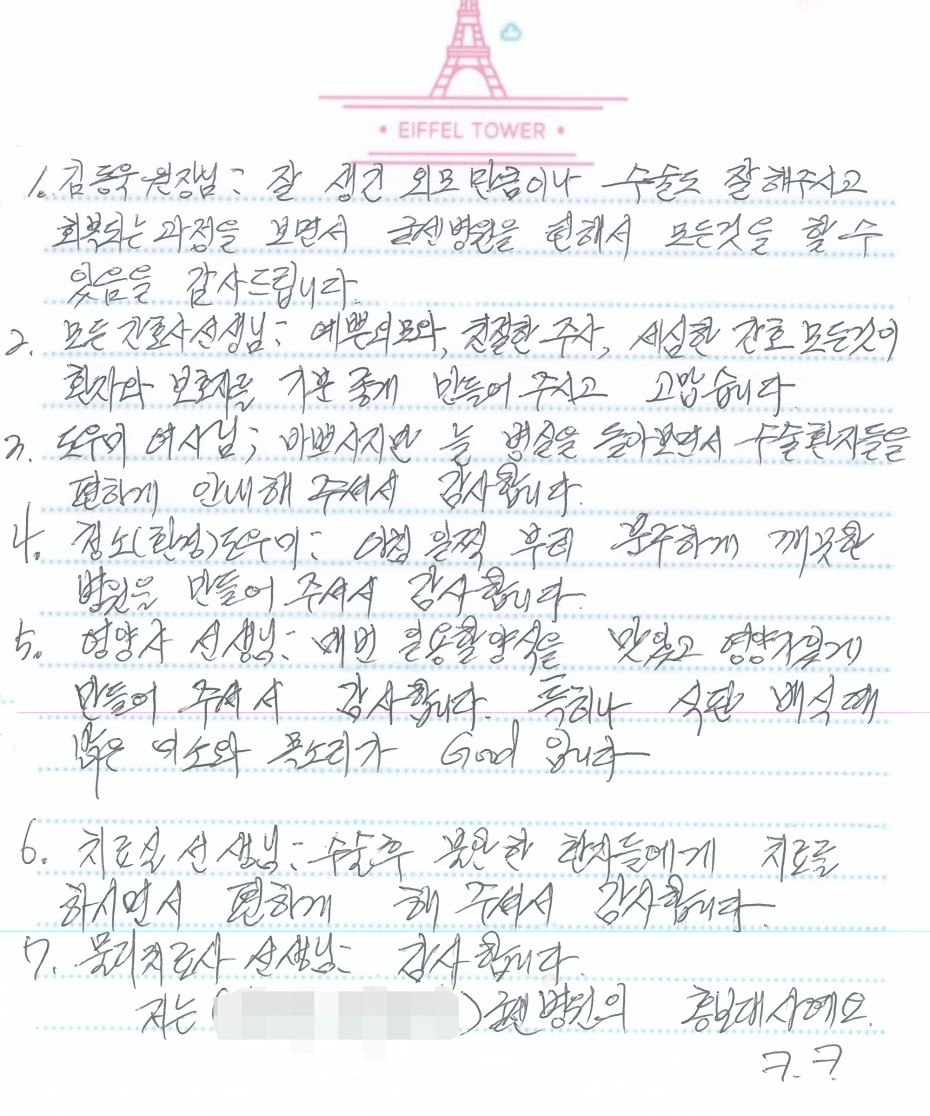 • EIFFEL TOWER •
1. 김동욱 원장님: 잘 생긴 외모 만큼이나 수술도 잘해주시고
회복되는 과정을 보면서 굳센병원을 통해서 모든것을 할 수
있음을 감사드립니다.
2. 모든 간호사선생님: 예쁜외모와, 친절한 주사, 세심한 간호 모든것이
환자와 보호자를 기분 좋게 만들어 주시고 고맙습니다.
3. 도우미 여사님; 바쁘시지만 늘 병실을 돌아보면서 수술환자들을
편하게 안내해 주셔서 감사합니다.
4. 청소(환경)도우미: 아침 일찍 부터 분주하게 깨끗한
병원을 만들어 주셔서 감사합니다.
5. 영양사 선생님: 매번 일용할양식을 맛있고 영양가있게
만들어 주셔서 감사합니다. 특히나 식판 배식때
밝은 미소와 목소리가 God 입니다
6. 치료실 선생님: 수술후 불안한 환자들에게 치료를
하시면서 편하게 해 주셔서 감사합니다.
7. 물리치료사 선생님: 감사합니다.
저는 ( ) 굳센병원의 홍보대사예요.
ㅋ.ㅋ